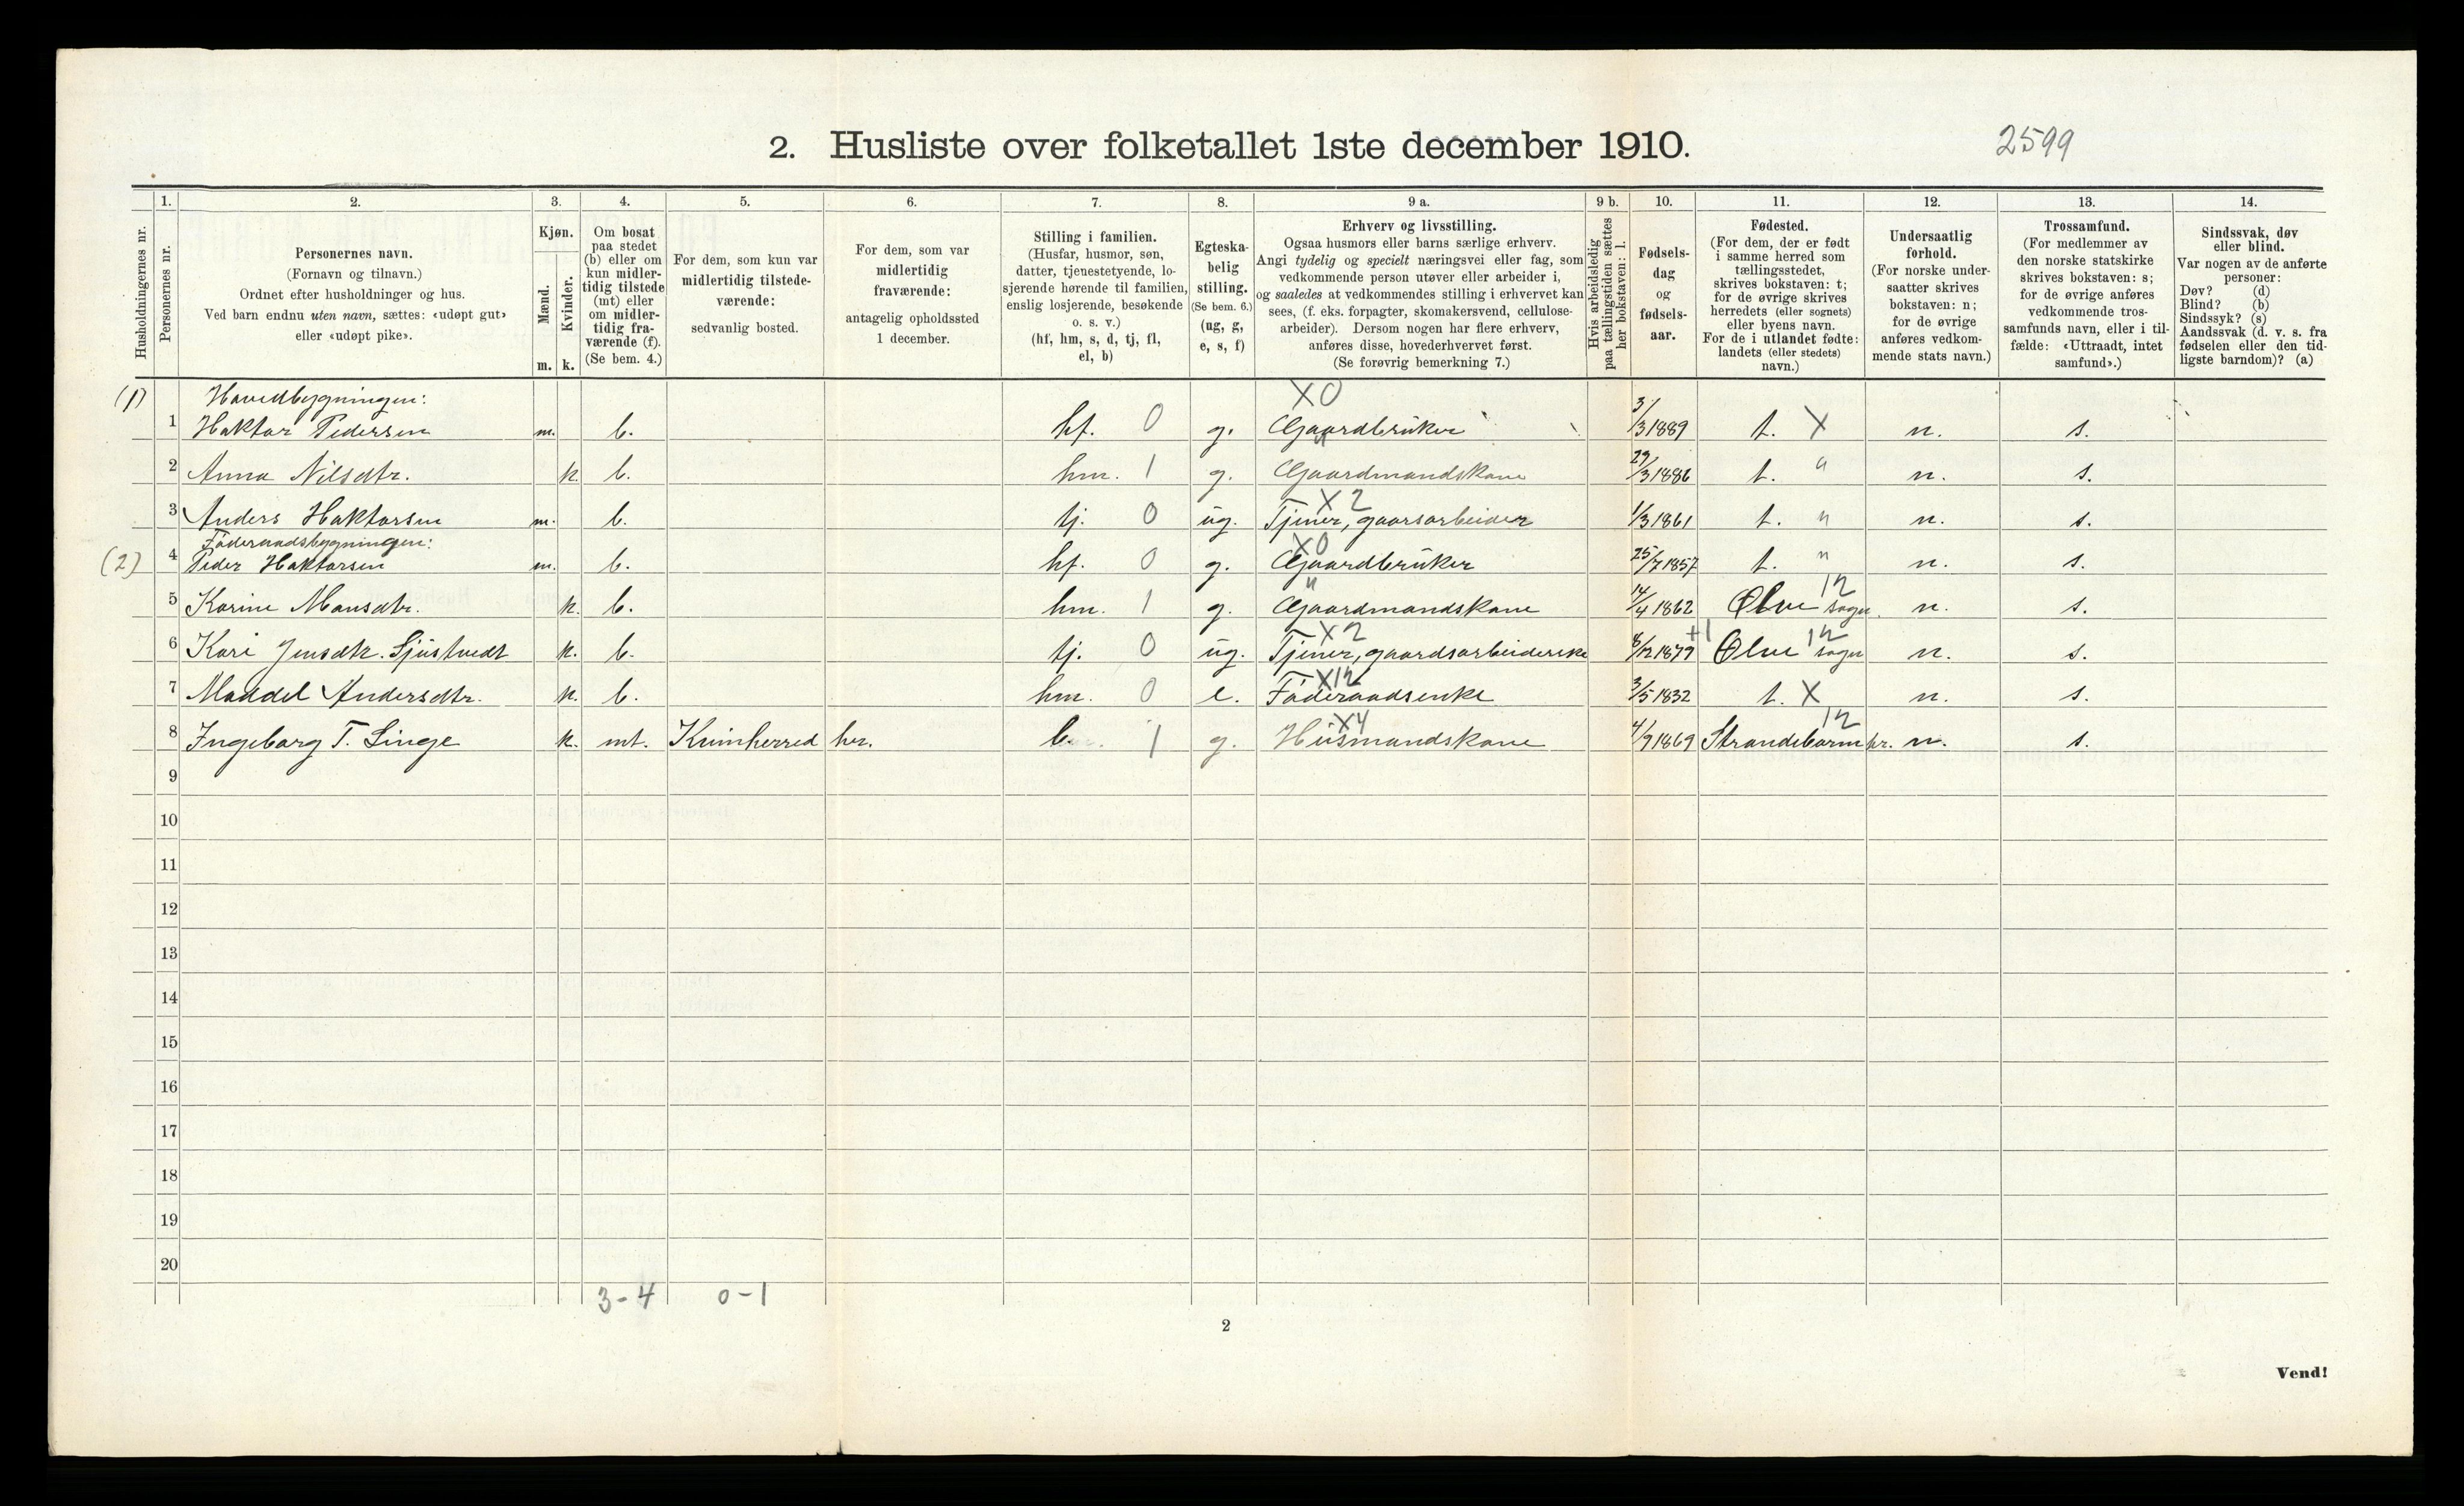 2. Husliste over folketallet 1ste december 1910.
2599
1. 2. 3. 4. 5. 6. 7. 8. 9 a. 9 b. 10. 11. 12. 13. 14.
Husholdningernes nr.
Personernes nr.
Personernes navn.
(Fornavn og tilnavn.)
Ordnet efter husholdninger og hus.
Ved barn endnu uten navn, sættes: «udøpt gut»
eller «udøpt pike».
Kjøn.
Mænd.
Kvinder.
m. k.
Om bosat
paa stedet
(b) eller om
kun midler-
tidig tilstede
(mt) eller
om midler-
tidig fra-
værende (f).
(Se bem. 4.)
For dem, som kun var
midlertidig tilstede-
værende:
sedvanlig bosted.
For dem, som var
midlertidig
fraværende:
antagelig opholdssted
1 december.
Stilling i familien.
(Husfar, husmor, søn,
datter, tjenestetyende, lo-
sjerende hørende til familien,
enslig losjerende, besøkende
o. s. v.)
(hf, hm, s, d, tj, fl,
el, b)
Egteska-
belig
stilling.
(Se bem. 6.)
(ug, g,
e, s, f)
Erhverv og livsstilling.
Ogsaa husmors eller barns særlige erhverv.
Angi tydelig og specielt næringsvei eller fag, som
vedkommende person utøver eller arbeider i,
og saaledes at vedkommendes stilling i erhvervet kan
sees, (f. eks. forpagter, skomakersvend, cellulose-
arbeider). Dersom nogen har flere erhverv,
anføres disse, hovederhvervet først.
(Se forøvrig bemerkning 7.)
Hvis arbeidsledig
paa tællingstiden sættes
her bokstaven: l.
Fødsels-
dag
og
fødsels-
aar.
Fødested.
(For dem, der er født
i samme herred som
tællingsstedet,
skrives bokstaven: t;
for de øvrige skrives
herredets (eller sognets)
eller byens navn.
For de i utlandet fødte:
landets (eller stedets)
navn.)
Undersaatlig
forhold.
(For norske under-
saatter skrives
bokstaven: n;
for de øvrige
anføres vedkom-
mende stats navn.)
Trossamfund.
(For medlemmer av
den norske statskirke
skrives bokstaven: s;
for de øvrige anføres
vedkommende tros-
samfunds navn, eller i til-
fælde: «Uttraadt, intet
samfund».)
Sindssvak, døv
eller blind.
Var nogen av de anførte
personer:
Døv? (d)
Blind? (b)
Sindssyk? (s)
Aandssvak (d. v. s. fra
fødselen eller den tid-
ligste barndom)? (a)
(1) Hovedbygningen: X0
1 Haktor Pedersen m. b. hf. 0 g. Gaardbruker 3/3 1889 t. X n. s.
2 Anna Nilsdtr. k. b. hm. 1 g. Gaardmandskone 29/3 1886 t. " n. s.
X 2
3 Anders Haktorsen m. b. tj. 0 ug. Tjener, gaarsarbeider 1/3 1861 t. " n. s.
Føderaadsbygningen: X0
(2) 4 Peder Haktorsen m. b. hf. 0 g. Gaardbruker 25/7 1857 t. " n. s.
" 12
5 Karine Monsdtr. k. b. hm. 1 g. Gaardmandskone 14/4 1862 Ølve sogn. n. s.
X 2 +1 12
6 Kari Jensdtr. Sjustvedt k. b. tj. 0 ug. Tjener, gaardsarbeiderske 8/12 1879 Ølve sogn n. s.
X12
7 Maddel Andersdtr. k. b. hm. 0 e. Føderaadsenke 3/5 1832 t. X n. s.
X4 12
8 Ingeborg T. Linge k. mt. Kvinherred hr. b. 1 g. Husmandskone 4/9 1869 Strandebarm hr. n. s.
9
10
11
12
13
14
15
16
17
18
19
20
3-4 0-1
2
Vend!